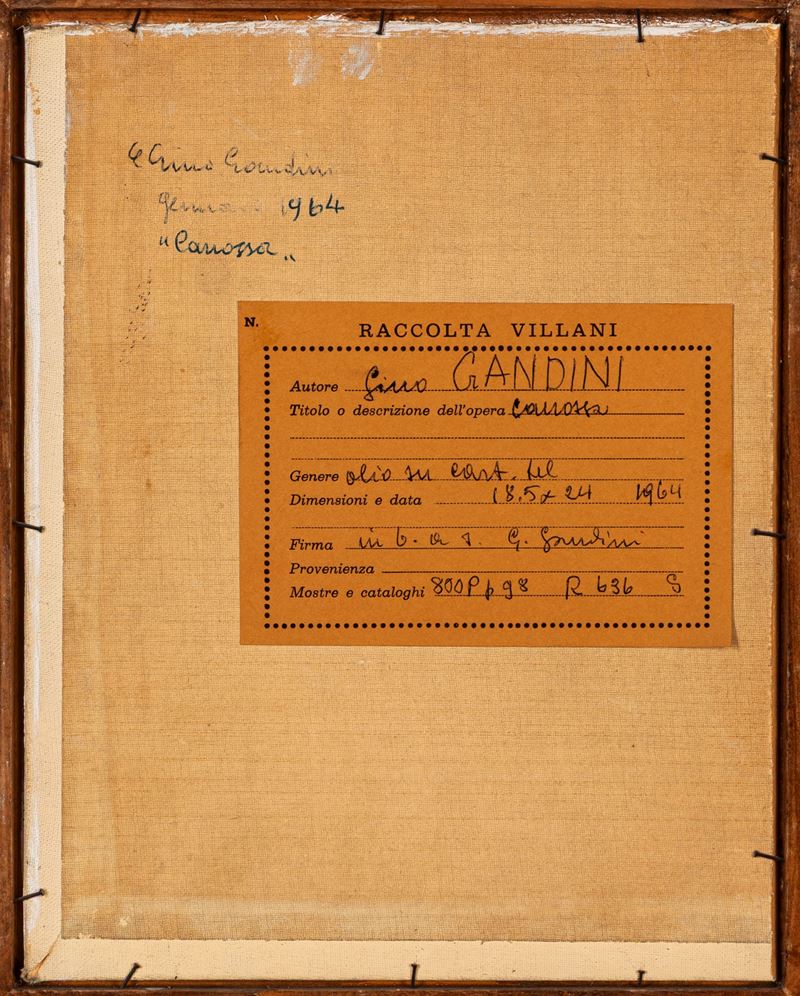 Gino Gandini
1964
"Canossa„
N.
RACCOLTA VILLANI
Autore Gino GANDINI
Titolo o descrizione dell'opera Canossa
Genere olio su cart. tel
Dimensioni e data 18.5x24 1964
Firma in b. a s. G. Gandini
Provenienza
Mostre e cataloghi 800P p 98 R 636 S